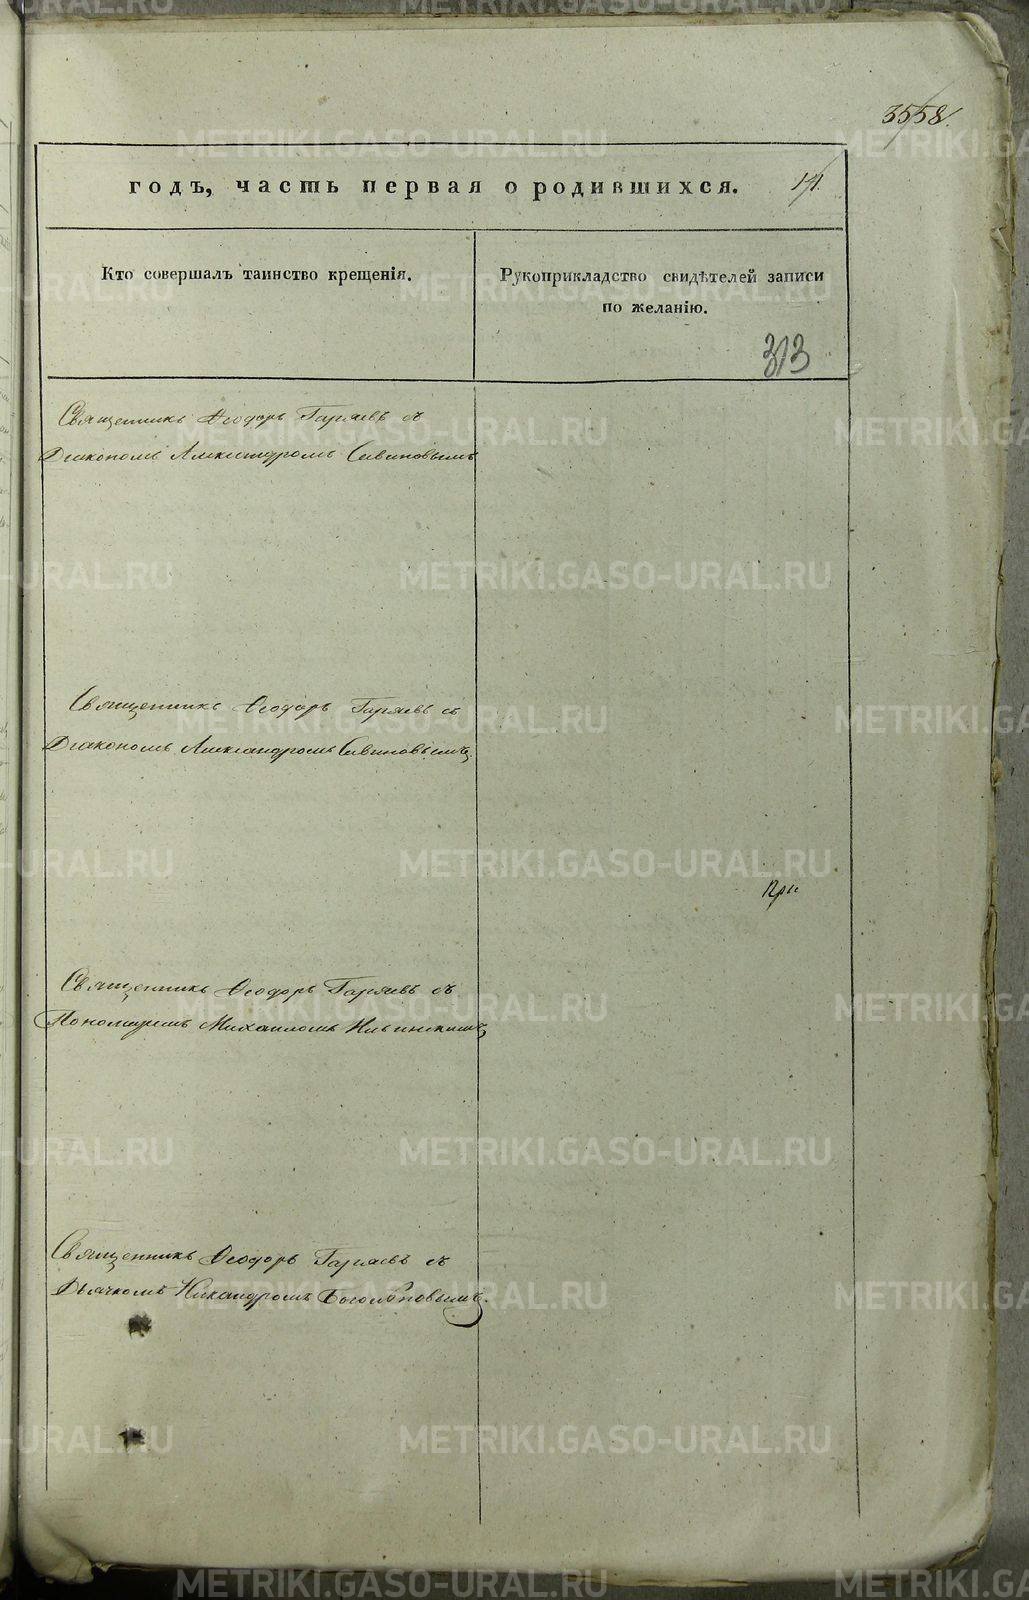 3558.
годъ, часть первая о родившихся. 171.
Кто совершалъ таинство крещенія.
Рукоприкладство свидѣтелей записи
по желанію.
313
Священникъ Ѳеодоръ Гаряевъ съ
Діакономъ Александромъ Савиновымъ
Священникъ Ѳеодоръ Гаряевъ съ
Діакономъ Александромъ Савиновымъ.
При
Священникъ Ѳеодоръ Гаряевъ съ
Пономаремъ Михаиломъ Ильинскимъ
Священникъ Ѳеодоръ Гаряевъ съ
Дьячкомъ Никандромъ Боголѣповымъ.
METRIKI.GASO-URAL.RU